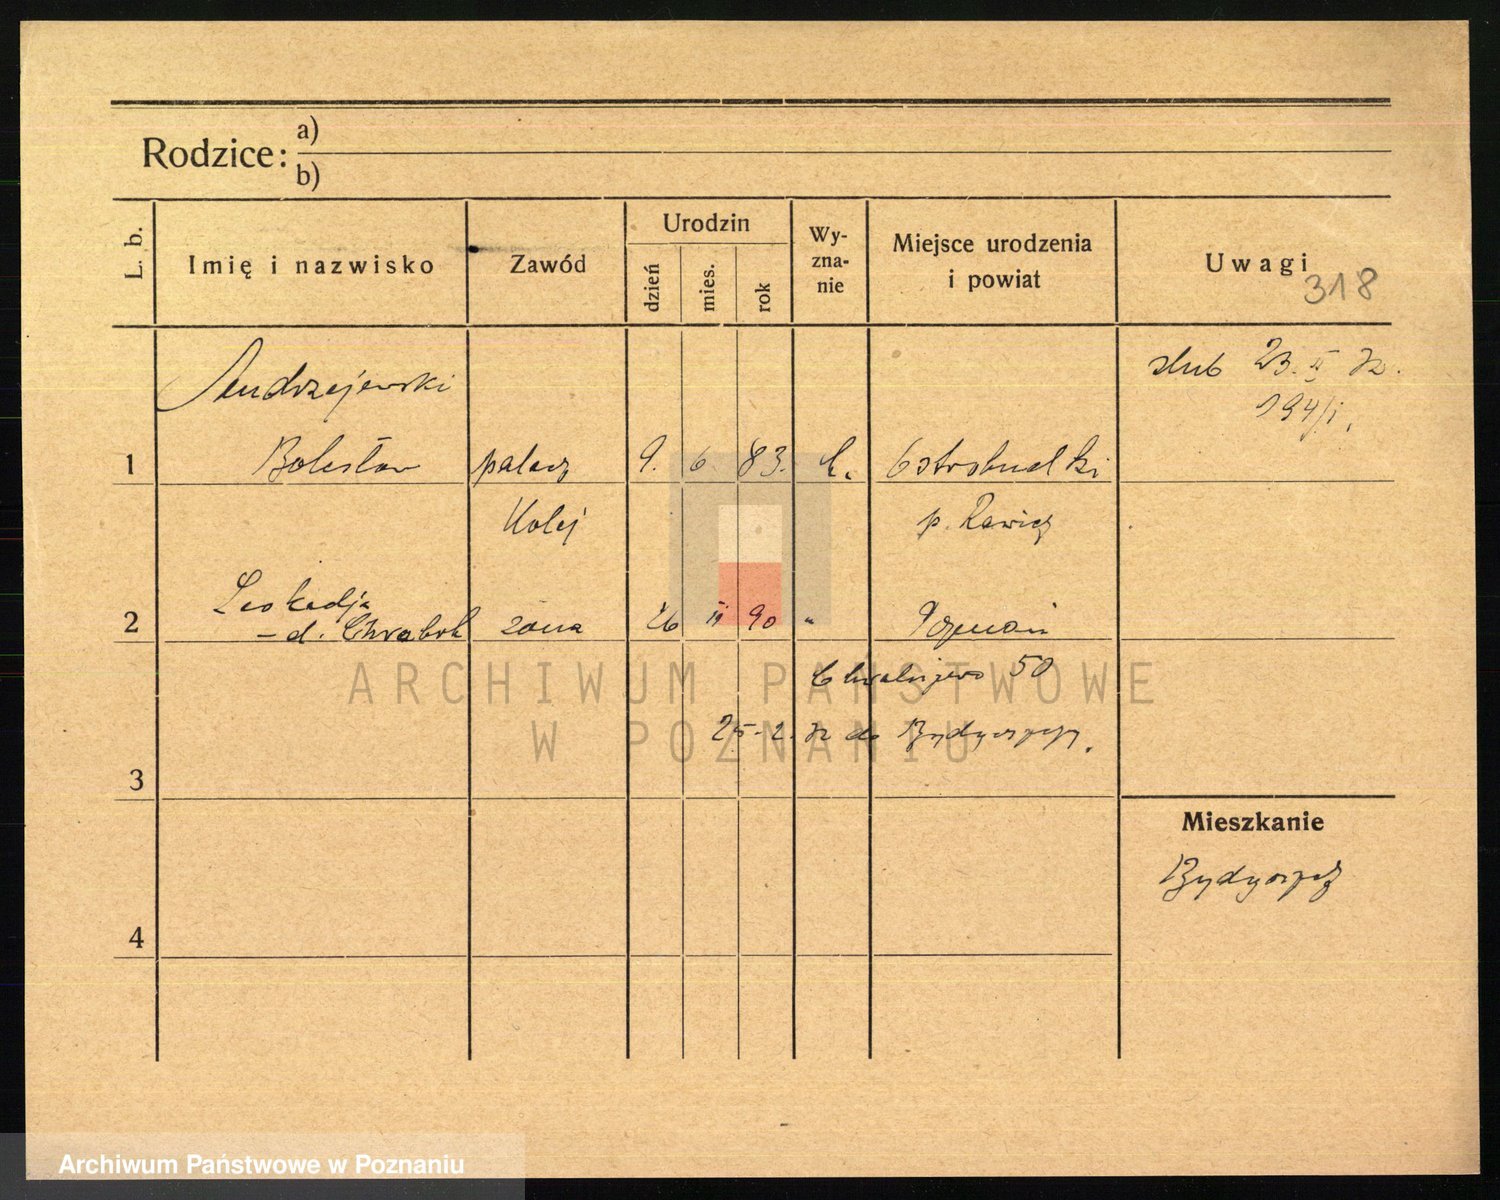 Rodzice: a)
b)
L. b.
Imię i nazwisko
Zawód
Urodzin
dzień
mies.
rok
Wy-
zna-
nie
Miejsce urodzenia
i powiat
Uwagi
318
Andrzejewski
ślub 23. II 32.
194/I.
1 Bolesław palacz 9. 6. 83. k.
Kolej p. Rawicz
2 Leokadja
- d. Chrobok żona 26 11 90 " Poznań
50
25-2. 32 do Bydgoszczy.
3
Mieszkanie
Bydgoszcz
4
ARCHIWUM PAŃSTWOWE
W POZNANIU
Archiwum Państwowe w Poznaniu